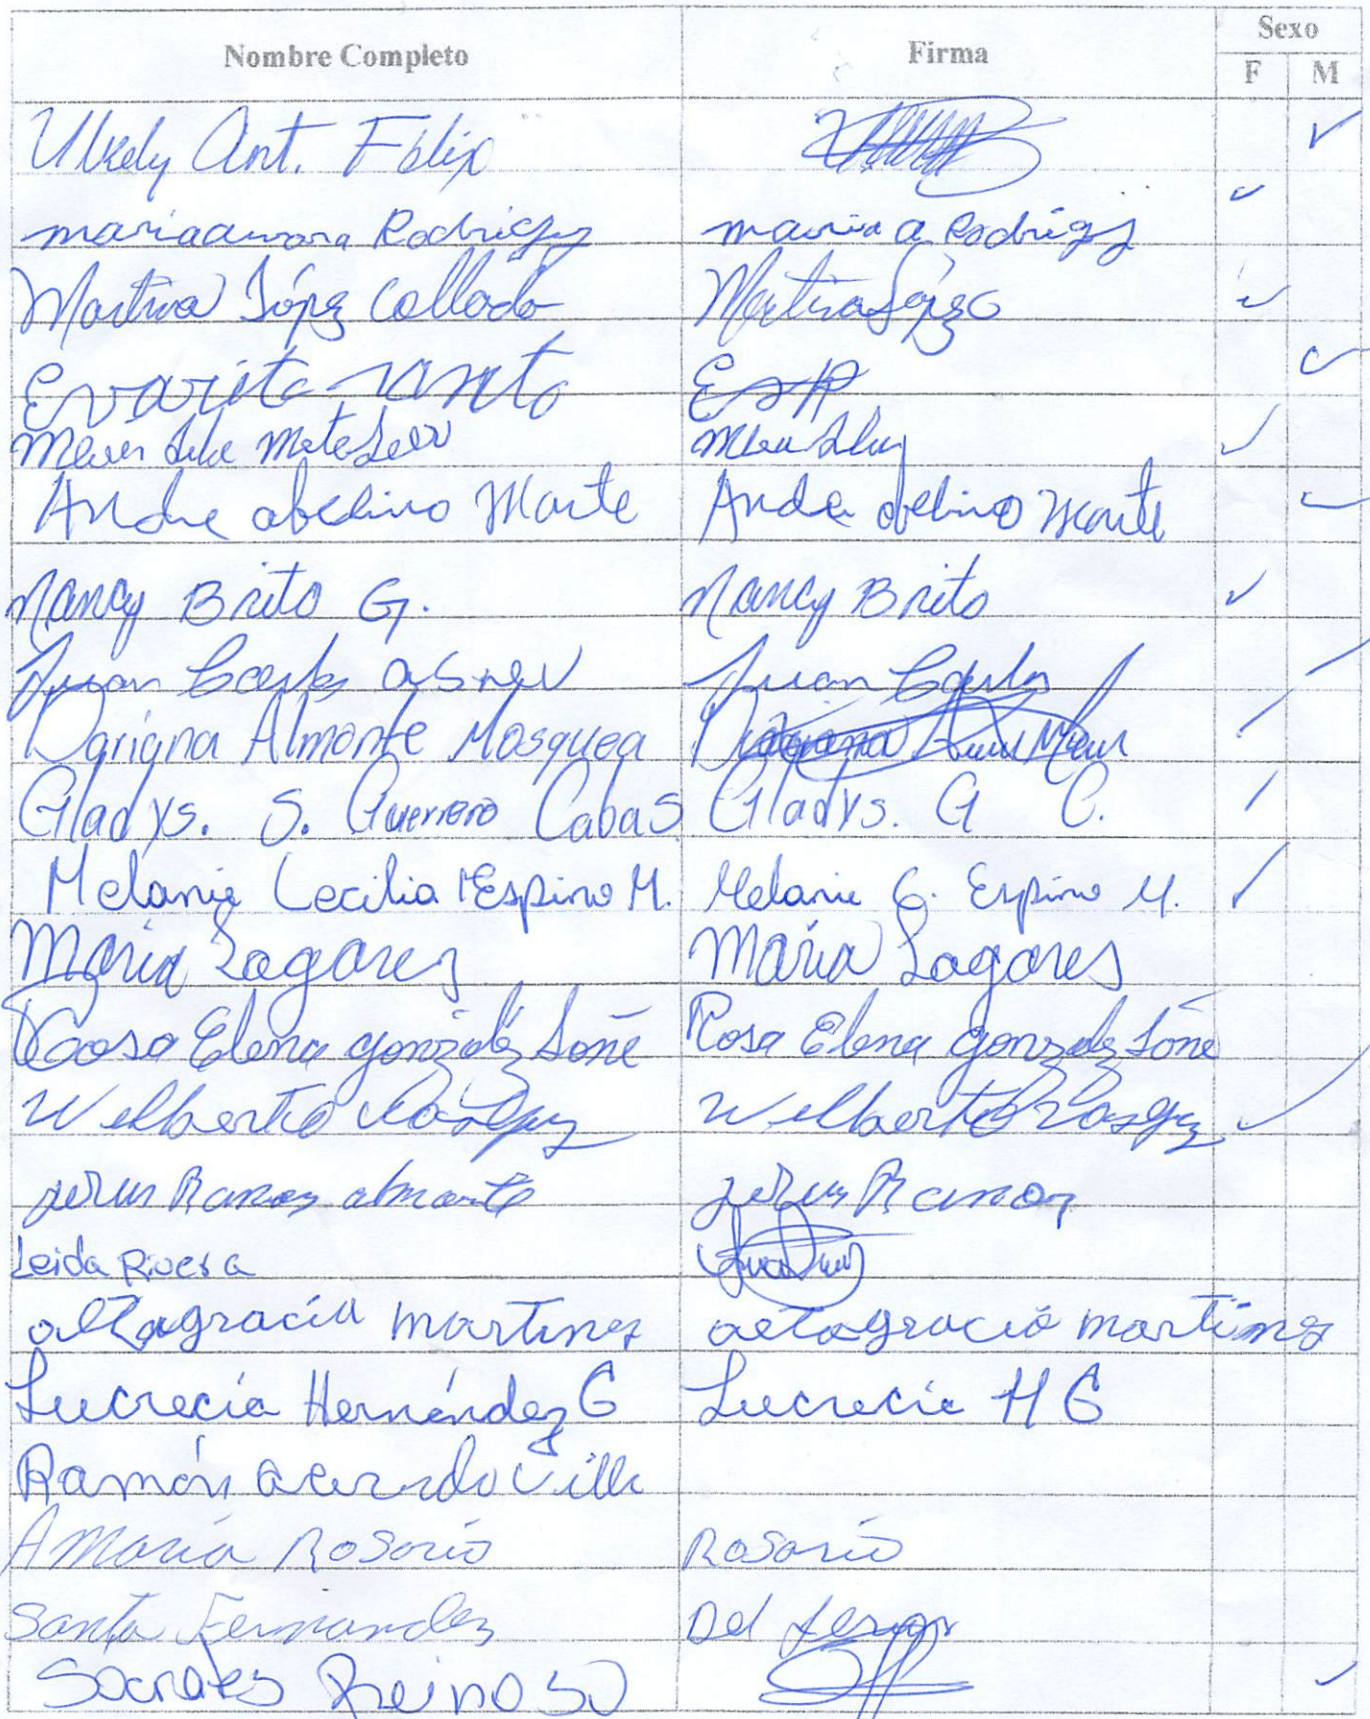 Nombre Completo Firma Sexo
F M
Ant. Felix
maria aurora Rodriguez maria a Rodrigz
Martina López Collado Martina López C
Evarito santo
Andre abelino Marte Andre abelino Marte
Nancy Brito G. Nancy Brito
Juan Carlos Juan Carlos
Darigna Almonte Mosquea
Gladys. S. Guerrero Cabas Gladys. G C.
Melanie Cecilia Espino M. Melanie C. Espino M.
Maria Lagares Maria Lagares
Rosa Elena gonzalez Soñe Rosa Elena gonzalez Soñe
Wilberto Wilberto
Ramos almonte Ramos
Leida Rivera
altagracia martinez altagracia martinez
Lucrecia Hernández G Lucrecia H G
Ramón
A Maria Rosario Rosario
Santa Fernandez Del
Socrates Reinoso